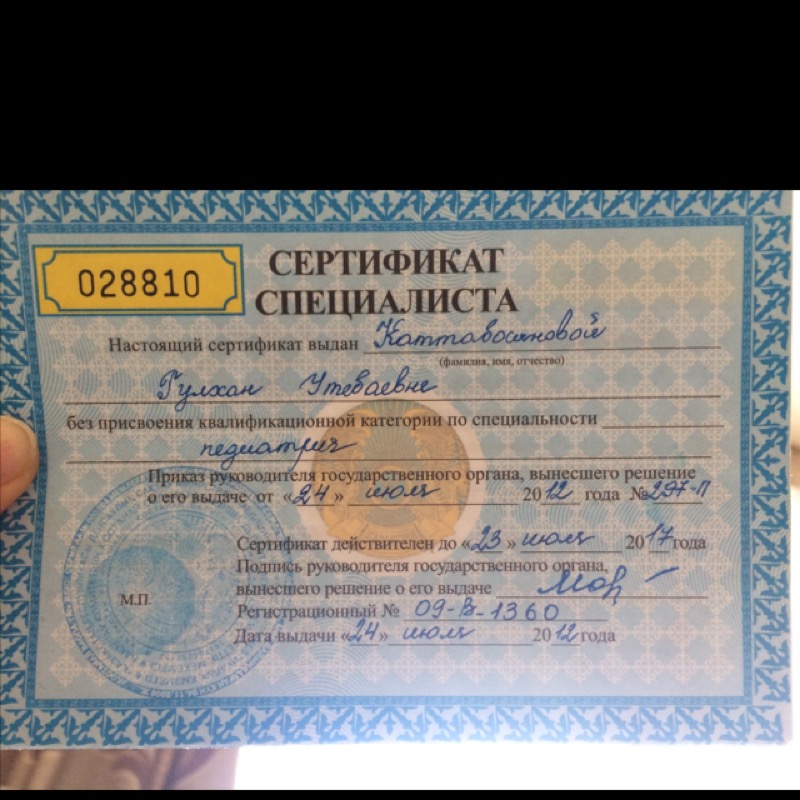 028810
СЕРТИФИКАТ
СПЕЦИАЛИСТА
Настоящий сертификат выдан Каттабосиновой
(фамилия, имя, отчество)
Гулхан Утебаевне
без присвоения квалификационной категории по специальности
педиатрия
Приказ руководителя государственного органа, вынесшего решение
о его выдаче от «24» июля 2012 года №297-П
Сертификат действителен до «23» июля 2017 года
Подпись руководителя государственного органа,
вынесшего решение о его выдаче
М.П.
Регистрационный № 09-В-1360
Дата выдачи «24» июля 2012 года